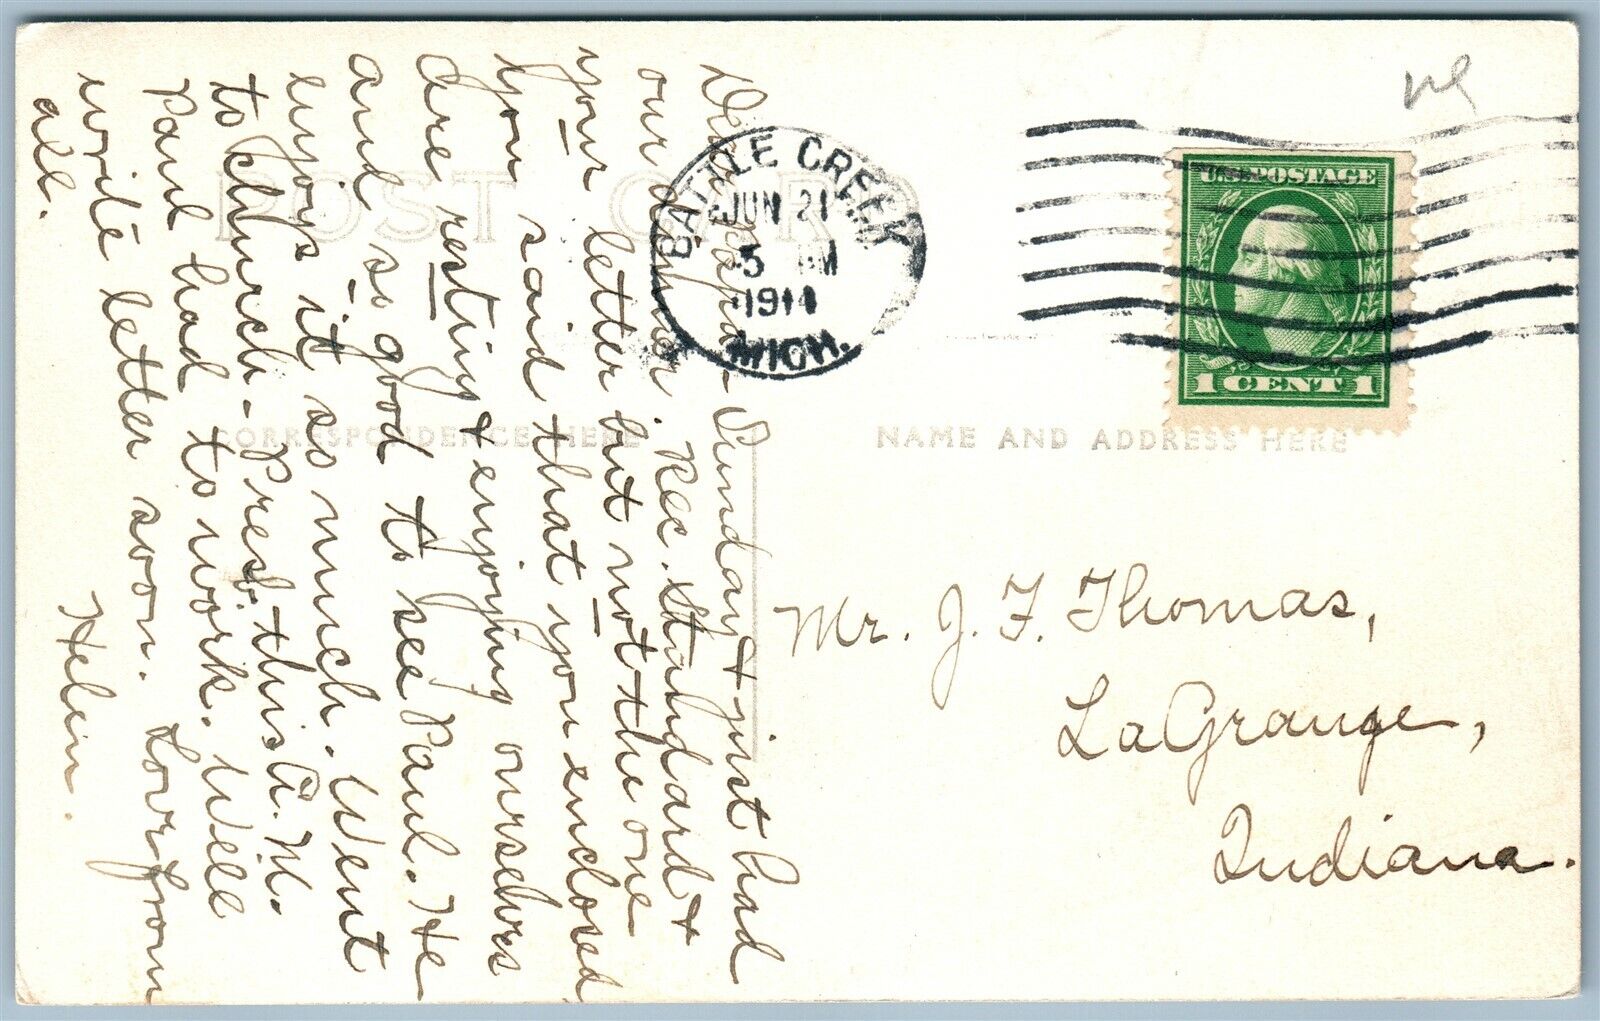 POST CARD
CORRESPONDENCE HERE
NAME AND ADDRESS HERE
BATTLE CREEK
JUN 21
5 PM
1914
MICH.
U.S. POSTAGE
1 CENT 1
Dear Papa - Sunday & just had
our dinner. Rec. Standard &
your letter but not the one
you said that you enclosed
Are resting & enjoying ourselves
and so good to see Paul. He
enjoys it so much. Went
to church - Presb. this A.M.
Paul had to work. Will
write letter soon. Love from
all.
Helen.
Mr. J. F. Thomas,
LaGrange,
Indiana.